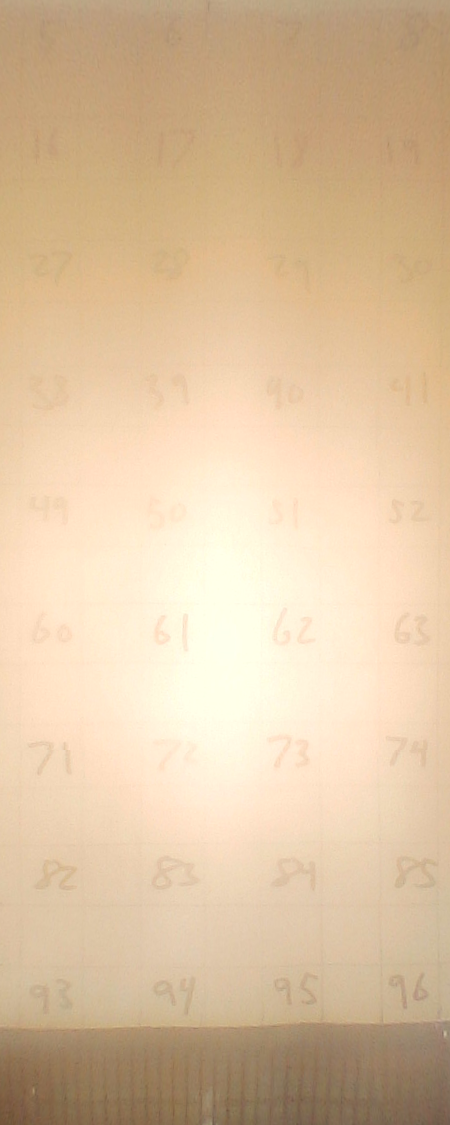 5 6 7 8
16 17 18 19
27 28 29 30
38 39 40 41
49 50 51 52
60 61 62 63
71 72 73 74
82 83 84 85
93 94 95 96